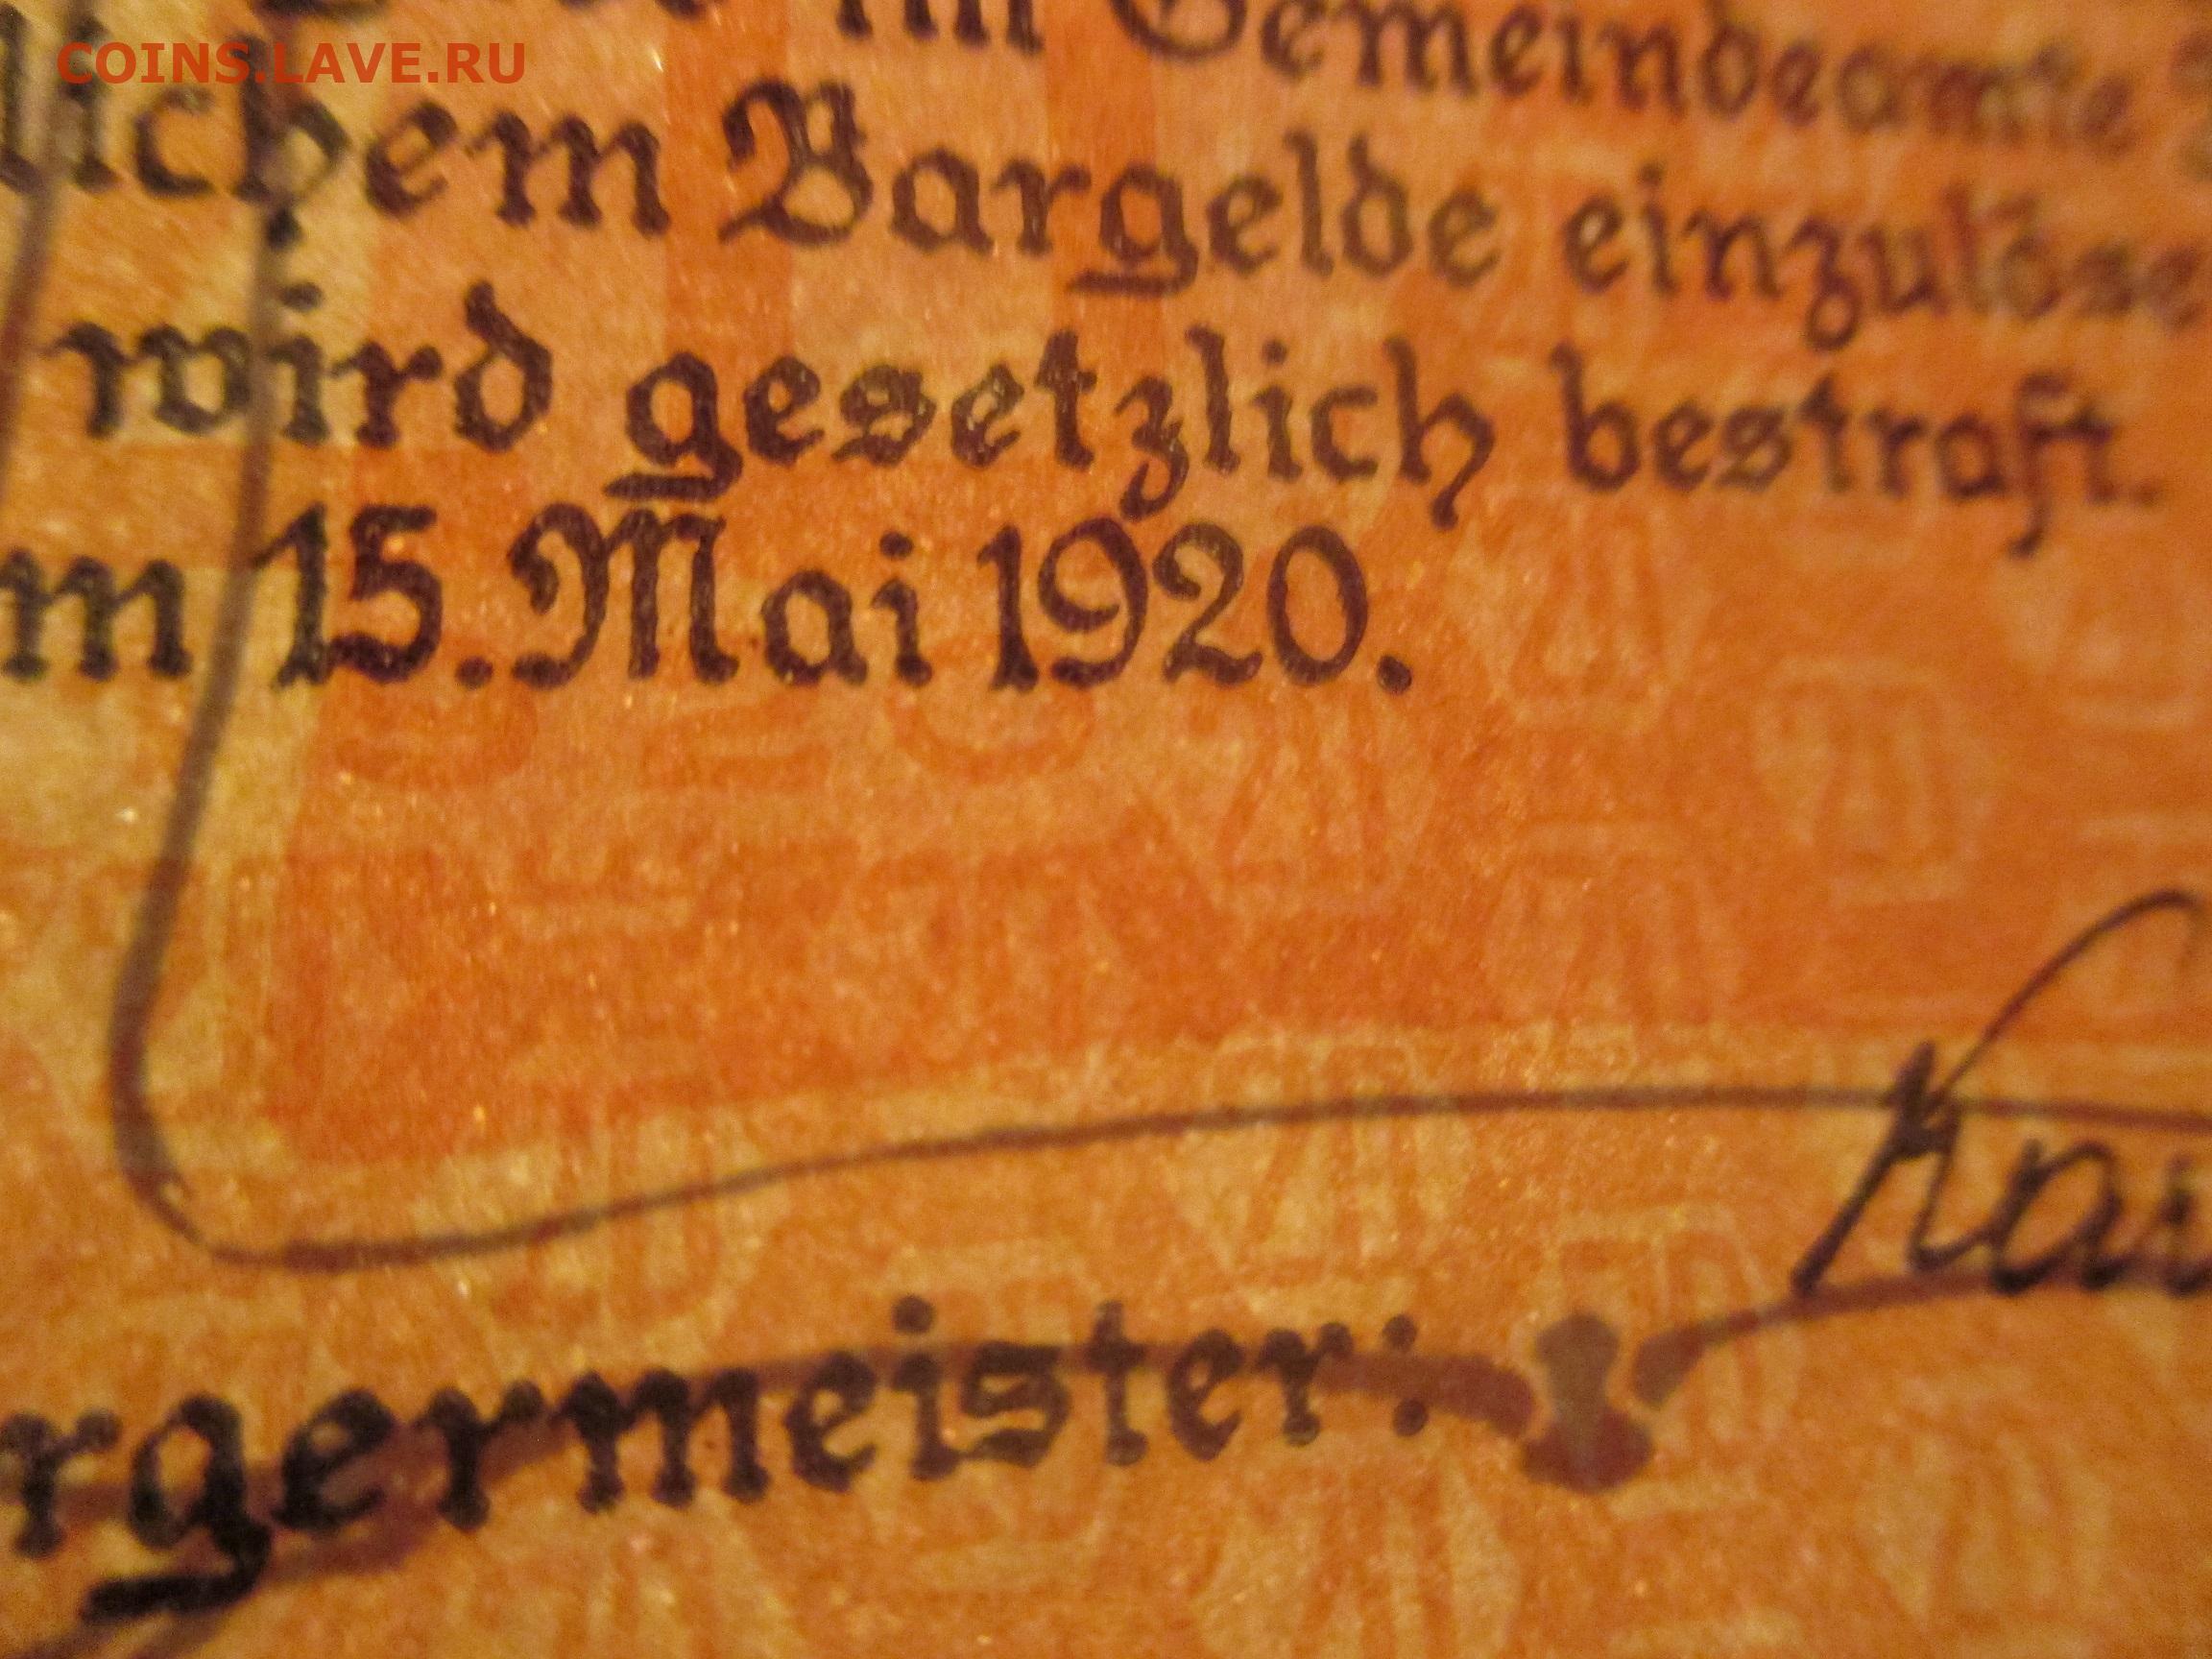 COINS.LAVE.RU
im Gemeindeamte
lichem Bargelde einzulöse
wird gesetzlich bestraft.
m 15. Mai 1920.
Kai
rgermeister: